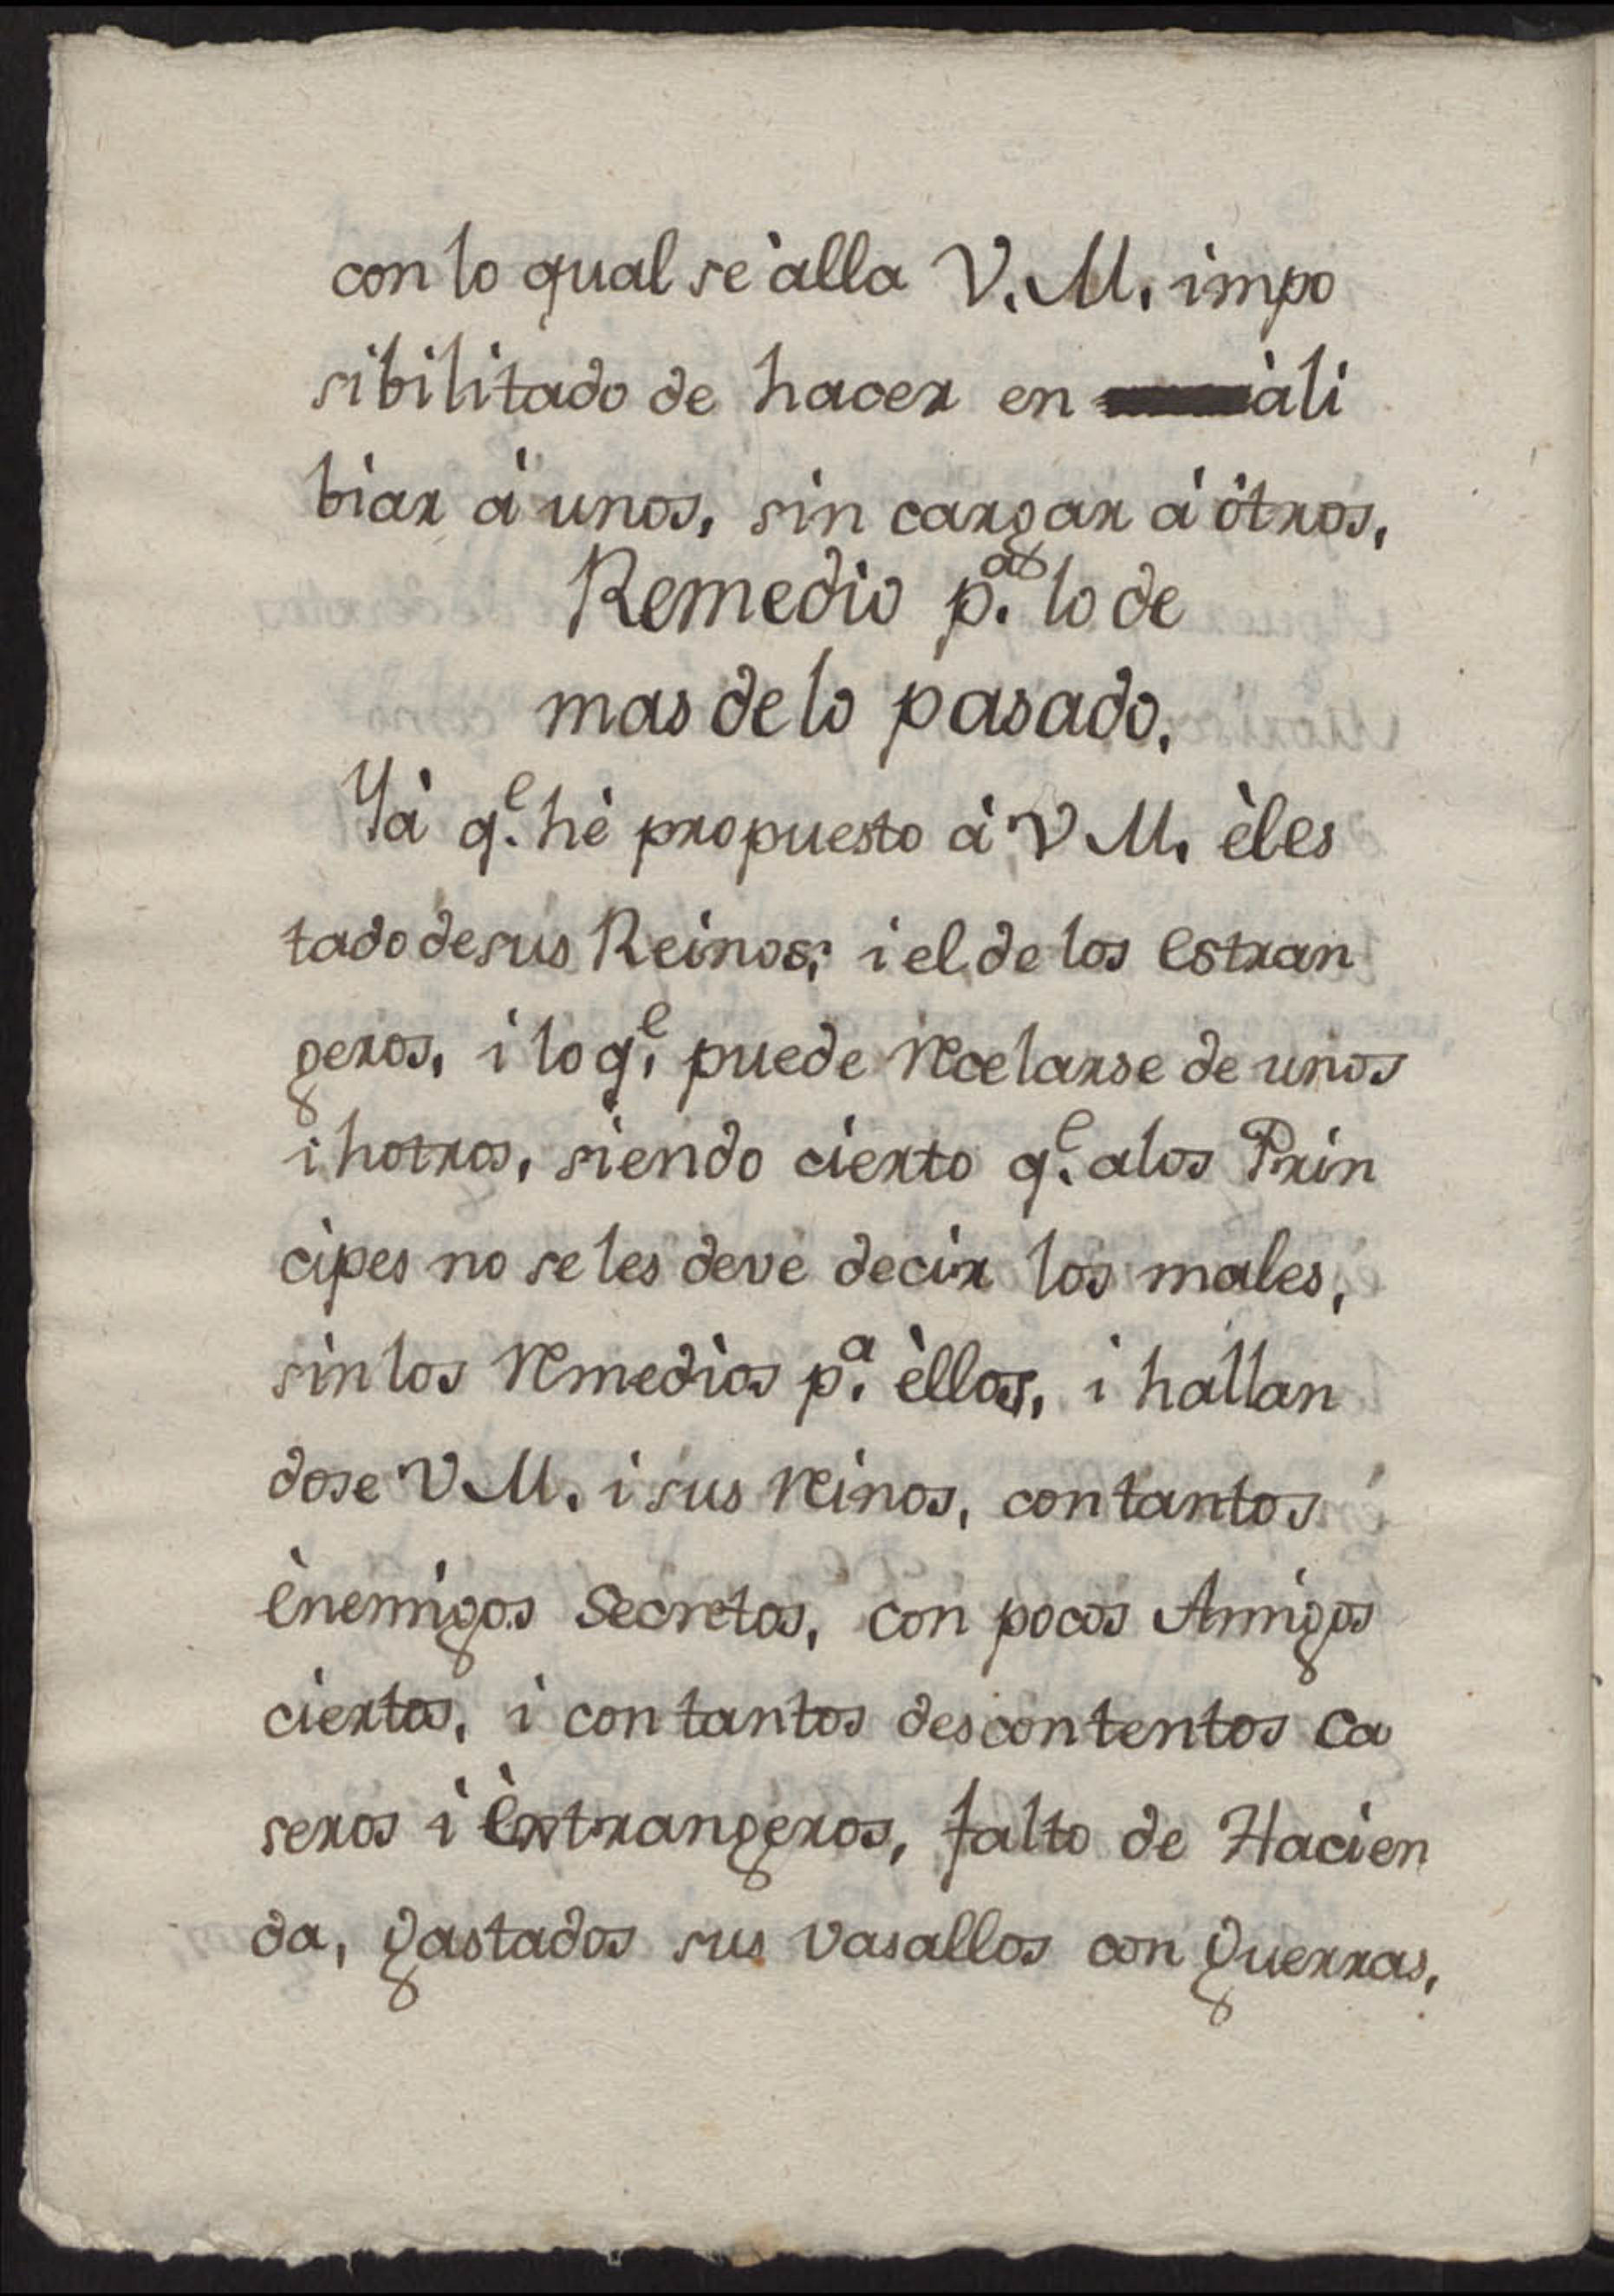 con lo qual se àlla V. M. impo
sibilitado de hacer en àli
biar à unos, sin cargar à òtros,
Remedio p.ª lo de
mas de lo pasado.
Yà q.e hè propuesto à V M. èl es
tado de sus Reinos; i el de los estran
geros, i lo q.e puede recelarse de unos
i hotros, siendo cierto q.e a los Prin
cipes no se les deve decir los males,
sin los remedios p.ª èllos, i hallan
dose V M. i sus reinos, con tantos
ènemigos secretos, con pocos Amigos
ciertos, i con tantos descontentos ca
seros i èstrangeros, falto de Hacien
da, gastados sus vasallos con guerras,